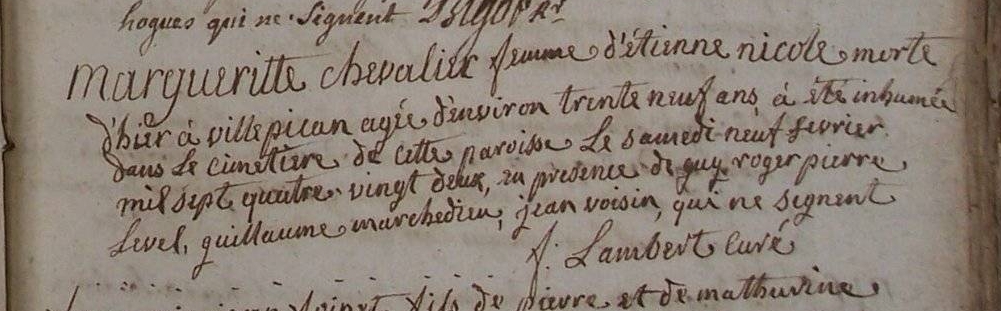 hogues qui ne signent
Margueritte chevalier femme d'étienne nicole morte
d'hier à villepican agée d'environ trente neuf ans à été inhumée
dans Le cimetière de cette paroisse Le samedi neuf fevrier
mil sept quatre vingt deux, en presence de guy roger pierre
Level, guillaume marchedieu, jean voisin, qui ne signent
f. Lambert Curé
fils de pierre et de mathurine